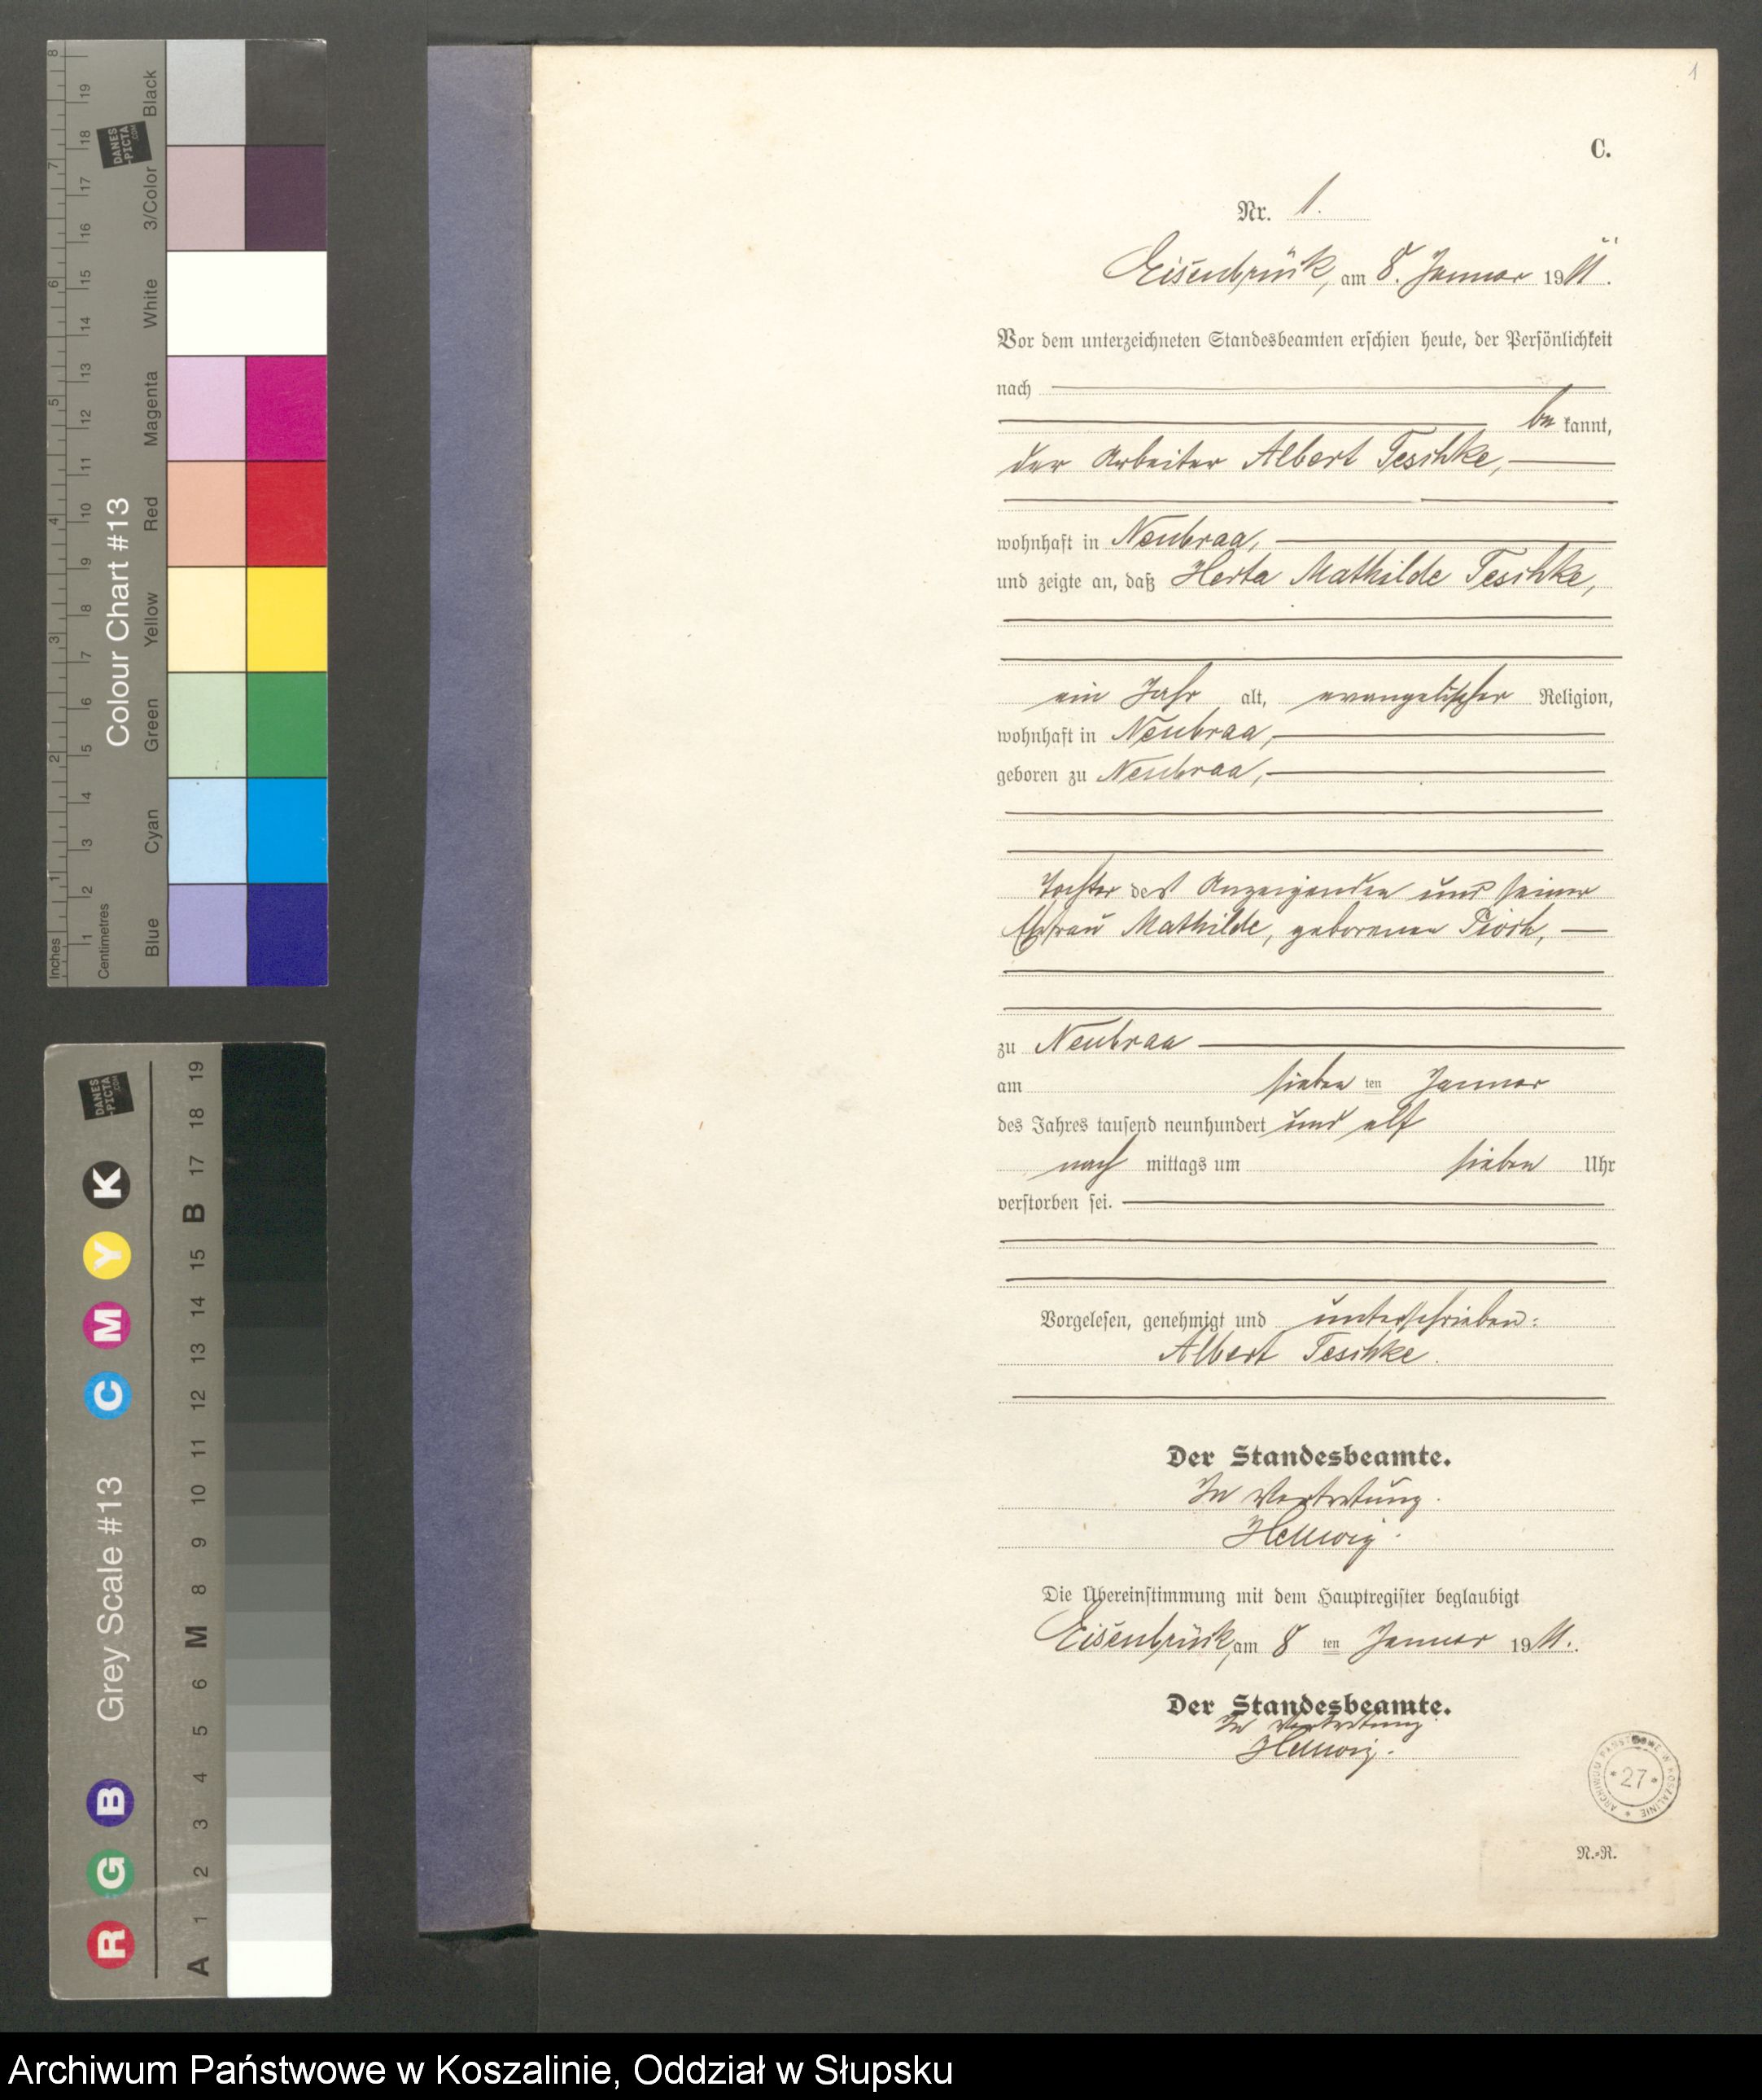 1
C.
Nr. 1.
Eisenbrück, am 8. Januar 1911.
Vor dem unterzeichneten Standesbeamten erschien heute, der Persönlichkeit
nach
be kannt,
der Arbeiter Albert Teschke,
wohnhaft in Neubraa,
und zeigte an, daß Herta Mathilde Teschke,
ein Jahr alt, evangelischer Religion,
wohnhaft in Neubraa,
geboren zu Neubraa,
Tochter des Anzeigenden und seiner
Ehefrau Mathilde, geborenen
zu Neubraa
am sieben ten Januar
des Jahres tausend neunhundert und elf
nach mittags um sieben Uhr
verstorben sei.
Vorgelesen, genehmigt und unterschrieben:
Albert Teschke.
Der Standesbeamte.
In Vertretung.
Hellwig.
Die Übereinstimmung mit dem Hauptregister beglaubigt
Eisenbrück, am 8 ten Januar 1911.
Der Standesbeamte.
In Vertretung.
Hellwig.
ARCHIWUM PAŃSTWOWE W KOSZALINIE
* 27 *
N.-R.
Colour Chart #13
Blue Cyan Green Yellow Red Magenta White 3/Color Black
Inches 1 2 3 4 5 6 7 8
Centimetres 1 2 3 4 5 6 7 8 9 10 11 12 13 14 15 16 17 18 19
DANES
-PICTA
.COM
Grey Scale #13
R G B C M Y K
A 1 2 3 4 5 6 M 8 9 10 11 12 13 14 15 B 17 18 19
DANES
-PICTA
.COM
Archiwum Państwowe w Koszalinie, Oddział w Słupsku